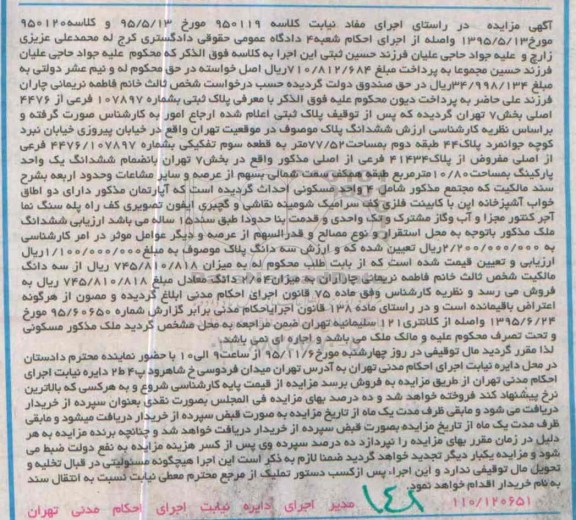 آگهی مزایده در راستای اجرای مفاد نیابت کلاسه ۹۵۰۱۱۹ مورخ ۹۵/۵/۱۳ و کلاسه ۹۵۰۱۲۰
مورخ ۱۳۹۵/۵/۱۳ واصله از اجرای احکام شعبه ۴ دادگاه عمومی حقوقی دادگستری کرج له محمدعلی عزیزی
زارچ و علیه جواد حاجی علیان فرزند حسین ثبتی این اجرا به کلاسه فوق الذکر که محکوم علیه جواد حاجی علیان
فرزند حسین مجموعا به پرداخت مبلغ ۷۱۰/۸۱۲/۶۸۴ ریال اصل خواسته در حق محکوم له و نیم عشر دولتی به
مبلغ ۳۴/۹۹۸/۱۳۴ ریال در حق صندوق دولت گردیده حسب درخواست شخص ثالث خانم فاطمه نریمانی چاران
فرزند علی حاضر به پرداخت دیون محکوم علیه فوق الذکر با معرفی پلاک ثبتی بشماره ۱۰۷۸۹۷ فرعی از ۴۴۷۶
اصلی بخش ۷ تهران گردیده که پس از توقیف پلاک ثبتی اعلام شده ارجاع امور به کارشناس صورت گرفته و
براساس نظریه کارشناسی ارزش ششدانگ پلاک موصوف در موقعیت تهران واقع در خیابان پیروزی خیابان نبرد
کوچه جوانمرد پلاک ۴۴ طبقه دوم بمساحت ۷۷/۵۲ متر به قطعه سوم تفکیکی بشماره ۴۴۷۶/۱۰۷۸۹۷ فرعی
از اصلی مفروض از پلاک ۴۱۴۳۴ فرعی از اصلی مذکور واقع در بخش ۷ تهران بانضمام ششدانگ یک واحد
پارکینگ بمساحت ۱۰/۸۰ مترمربع طبقه همکف سمت شمالی بسهم از عرصه و سایر مشاعات وحدود اربعه بشرح
سند مالکیت که مجتمع مذکور شامل ۴ واحد مسکونی احداث گردیده است که آپارتمان مذکور دارای دو اطاق
خواب آشپزخانه اپن با کابینت فلزی کف سرامیک شومینه نقاشی و گچبری آیفون تصویری کف راه پله سنگ نما
آجر کنتور مجزا و آب وگاز مشترک و تک واحدی و قدمت بنا حدودا طبق سند ۱۵ ساله می باشد ارزیابی ششدانگ
ملک مذکور باتوجه به محل استقرار و نوع مصالح و قدرالسهم از عرصه و دیگر عوامل موثر در امر کارشناسی
به ۲/۲۰۰/۰۰۰/۰۰۰ ریال تعیین شده که و ارزش سه دانگ پلاک موصوف به مبلغ ۱/۱۰۰/۰۰۰/۰۰۰ ریال
ارزیابی و تعیین قیمت شده است که از بابت طلب محکوم له به میزان ۷۴۵/۸۱۰/۸۱۸ ریال از سه دانگ
مالکیت شخص ثالث خانم فاطمه نریمانی چاراران به میزان ۲/۰۴ دانگ معادل مبلغ ۷۴۵/۸۱۰/۸۱۸ ریال به
فروش می رسد و نظریه کارشناس وفق ماده ۷۵ قانون اجرای احکام مدنی ابلاغ گردیده و مصون از هرگونه
اعتراض باقیمانده است و در راستای ماده ۱۳۸ قانون اجرایاحکام مدنی برابر گزارش شماره ۹۵/۶۰۶۵۰ مورخ
۱۳۹۵/۶/۲۴ واصله از کلانتری ۱۲۱ سلیمانیه تهران ضمن مراجعه به محل مشخص گردید ملک مذکور مسکونی
و تحت تصرف محکوم علیه و مالک ملک می باشد و اجاره ای نمی باشد.
لذا مقرر گردید مال توقیفی در روز چهارشنبه مورخ ۹۵/۱۱/۶ از ساعت ۹ الی ۱۰ با حضور نماینده محترم دادستان
در محل دایره نیابت اجرای احکام مدنی تهران به آدرس تهران میدان فردوسی خ شاهرود پ ۴ ط ۲ دایره نیابت اجرای
احکام مدنی تهران از طریق مزایده به فروش برسد مزایده از قیمت پایه کارشناسی شروع و به هرکسی که بالاترین
نرخ پیشنهاد کند فروخته خواهد شد و ده درصد بهای مزایده فی المجلس بصورت نقدی بعنوان سپرده از خریدار
دریافت می شود و مابقی ظرف مدت یک ماه از تاریخ مزایده به صورت قبض سپرده از خریدار دریافت میشود و مابقی
ظرف مدت یک ماه از تاریخ مزایده بصورت قبض سپرده از خریدار دریافت خواهد شد و چنانچه برنده مزایده به هر
دلیل در زمان مقرر بهای مزایده را نپردازد ده درصد سپرده وی پس از کسر هزینه مزایده به نفع دولت ضبط می
شود و مزایده یکبار دیگر تجدید خواهد گردید ضمنا لازم به ذکر است این اجرا هیچگونه مسئولیتی در قبال تخلیه و
تحویل مال توقیفی ندارد و این اجراء پس ازکسب دستور تملیک از مرجع محترم معطی نیابت نسبت به انتقال سند
به نام خریدار اقدام خواهد نمود.
۱۱۰/۱۲۰۶۵۱ ۱۴۸
مدیر اجرای دایره نیابت اجرای احکام مدنی تهران